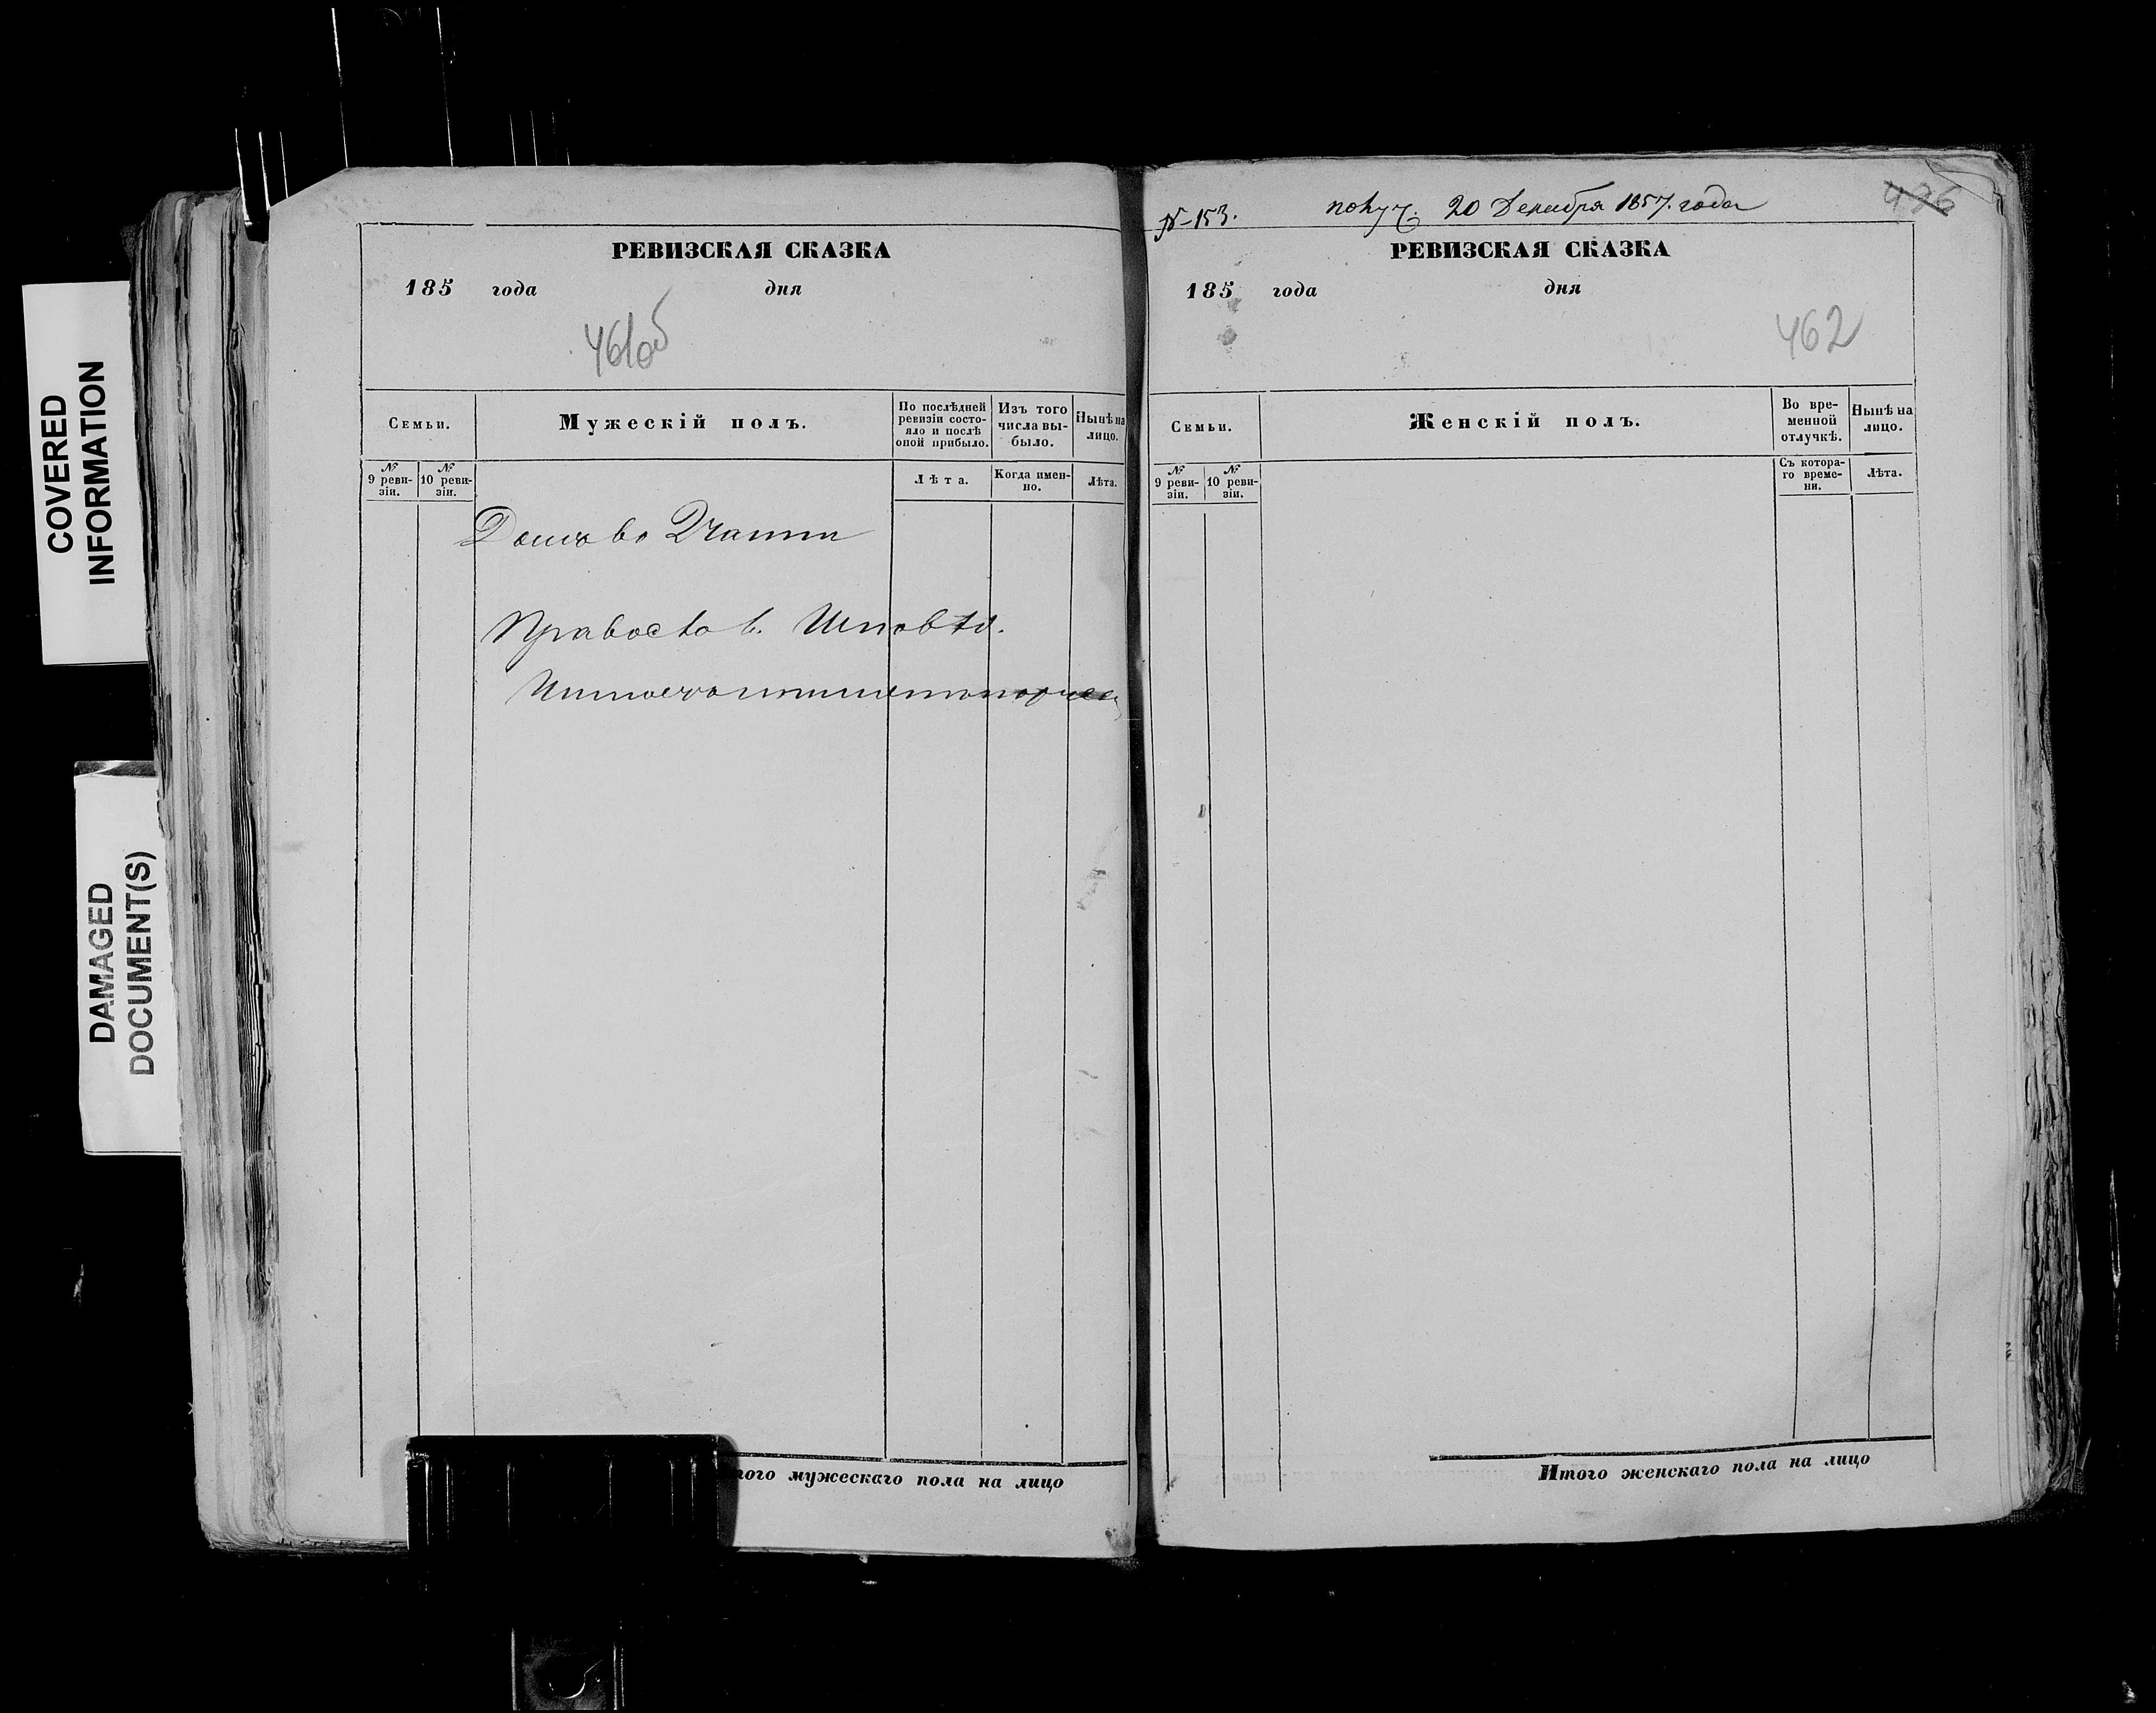 COVERED
INFORMATION
DAMAGED
DOCUMENT(S)
РЕВИЗСКАЯ СКАЗКА
185 года дня
461об
Семьи.
Мужескій полъ.
По послѣдней ревизіи состо-
яло и послѣ
оной прибыло.
Изъ того
числа вы-
было.
Нынѣ на
лицо.
№
9 реви-
зіи.
№
10 реви-
зіи.
Лѣта.
Когда имен-
но.
Лѣта.
Правослов. Исповѣд.
того мужескаго пола на лицо
№ 153.
получ. 20 Декабря 1857. года
436
РЕВИЗСКАЯ СКАЗКА
185 года дня
462
Семьи.
Женскій полъ.
Во вре-
менной
отлучкѣ.
Нынѣ на
лицо.
№
9 реви-
зіи.
№
10 реви-
зіи.
Съ котора-
го време-
ни.
Лѣта.
Итого женскаго пола на лицо